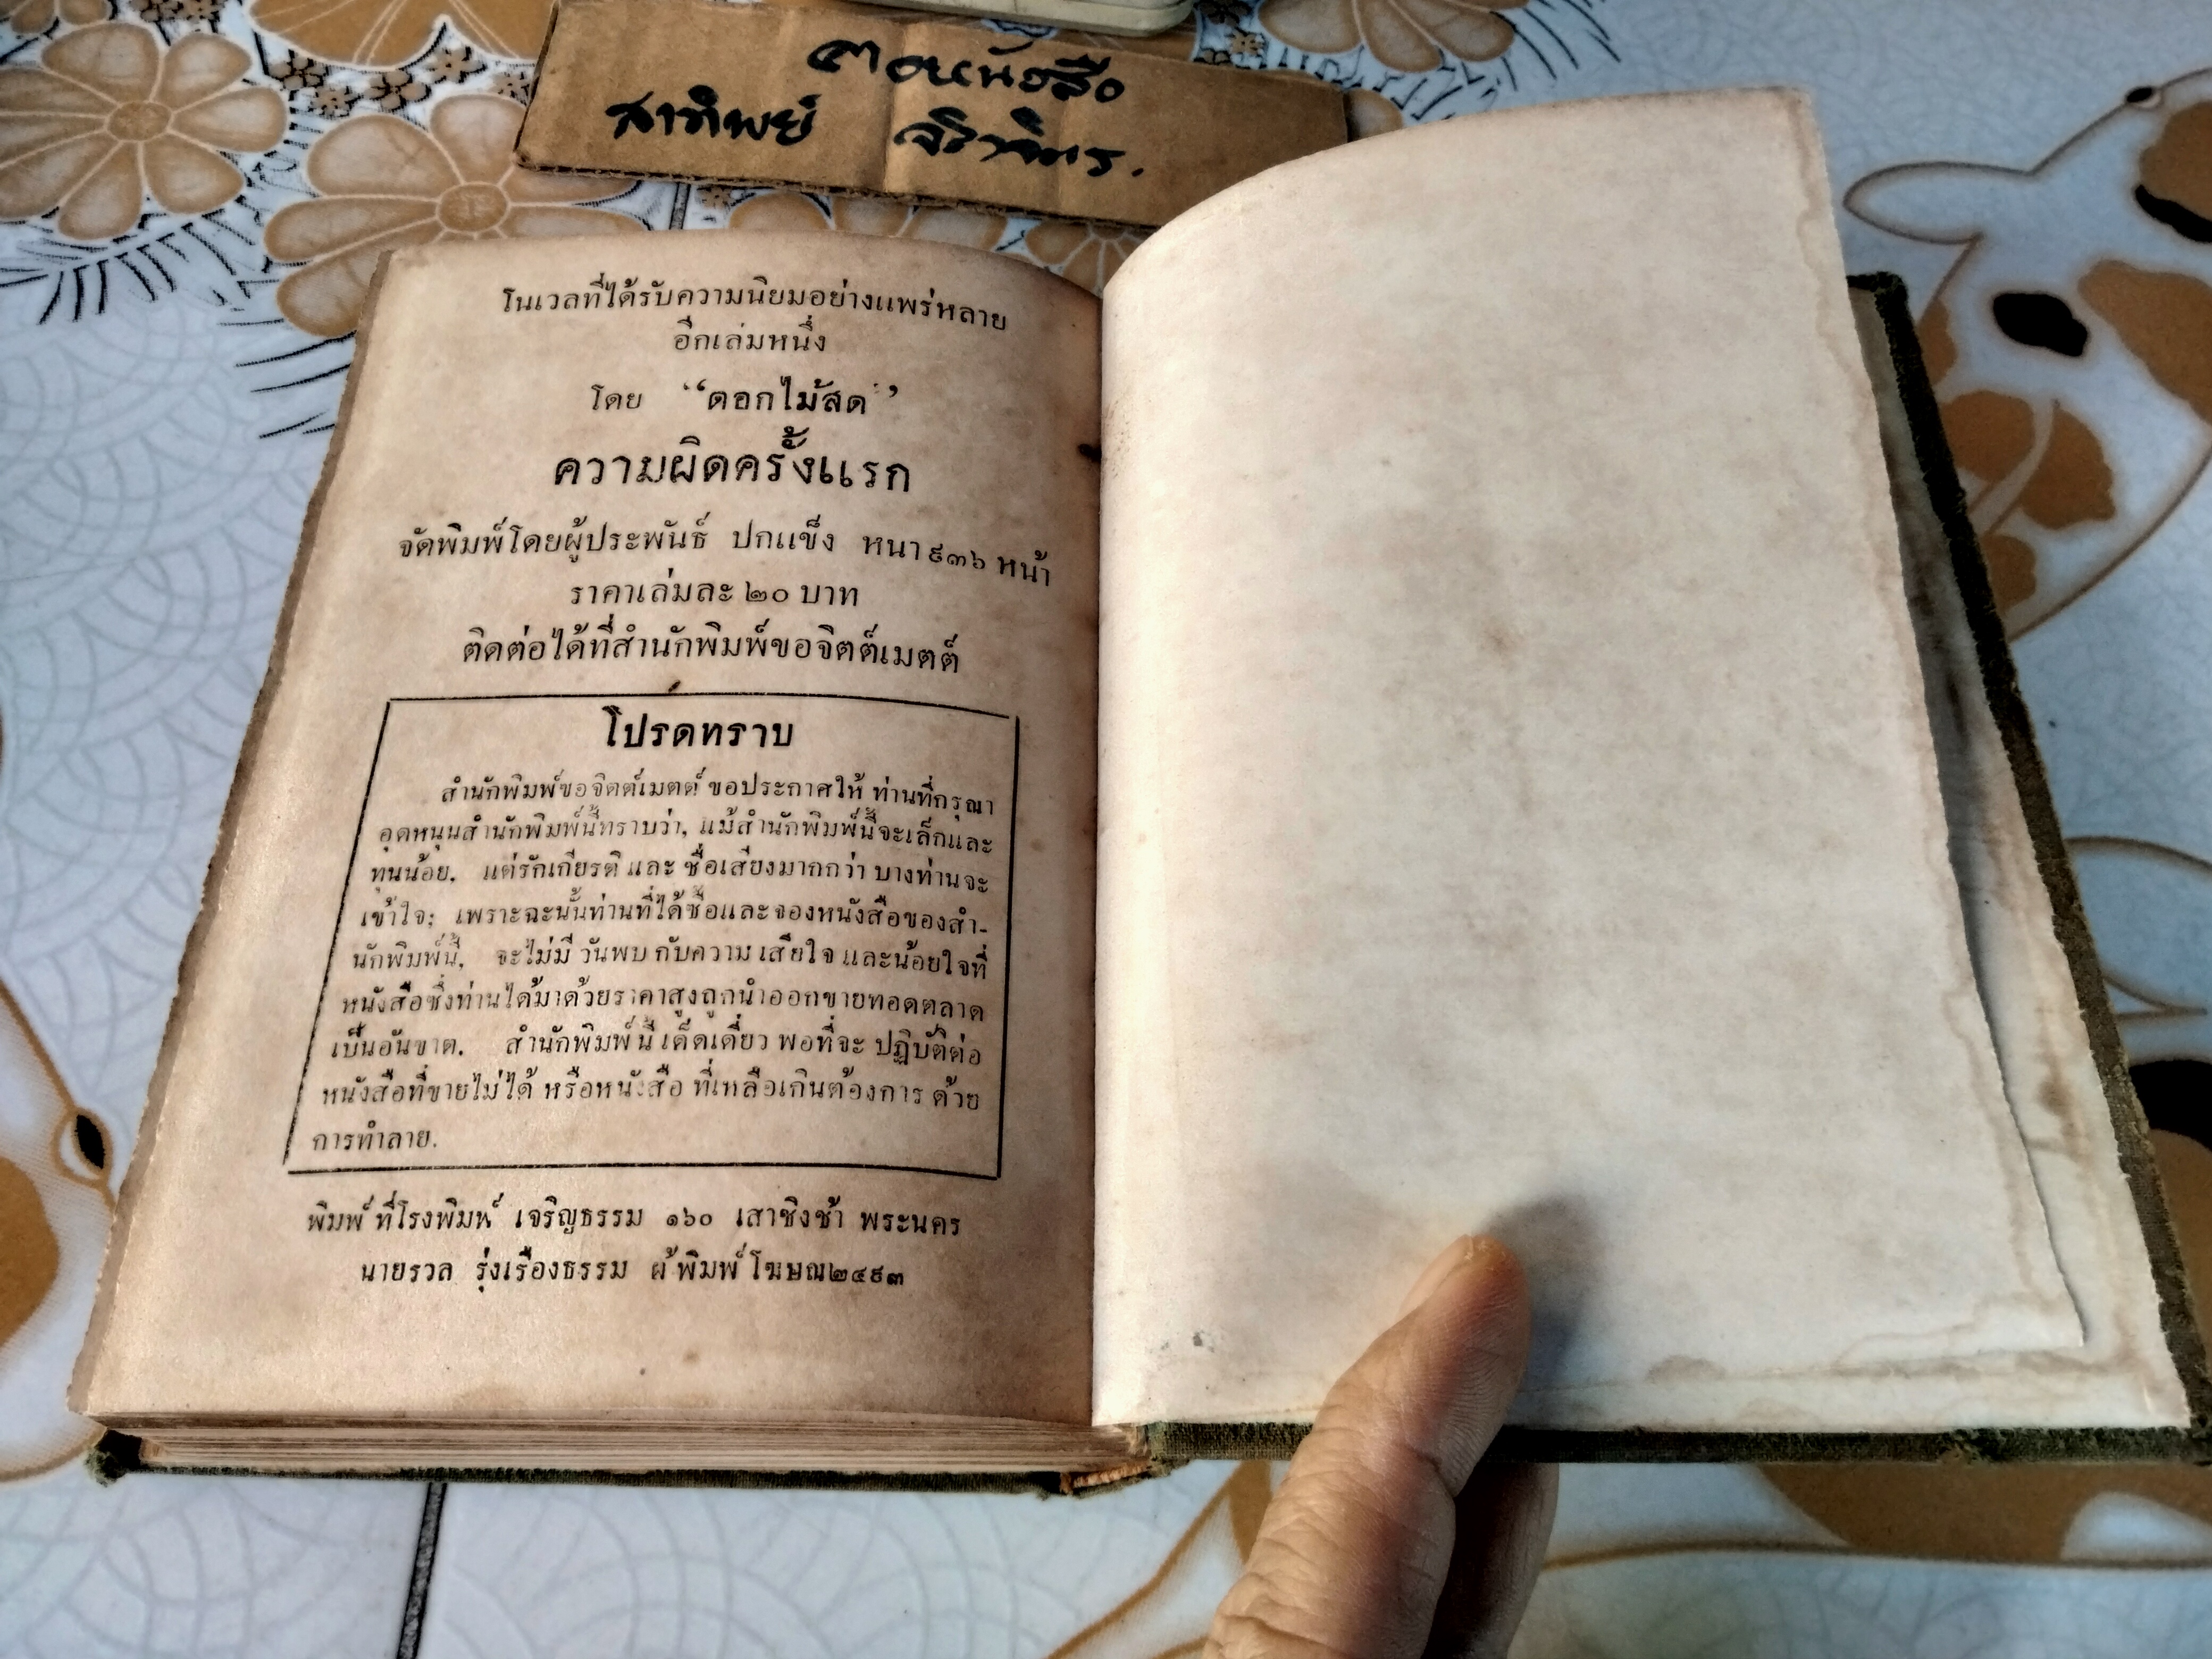 ฅ ฅนหนังสือ
สาทิพย์
โนเวลที่ได้รับความนิยมอย่างแพร่หลาย
อีกเล่มหนึ่ง
โดย "ดอกไม้สด"
ความผิดครั้งแรก
จัดพิมพ์โดยผู้ประพันธ์ ปกแข็ง หนา ๙๓๖ หน้า
ราคาเล่มละ ๒๐ บาท
ติดต่อได้ที่สำนักพิมพ์ขอจิตต์เมตต์
โปรดทราบ
สำนักพิมพ์ขอจิตต์เมตต์ ขอประกาศให้ ท่านที่กรุณา
อุดหนุนสำนักพิมพ์นี้ทราบว่า, แม้สำนักพิมพ์นี้จะเล็กและ
ทุนน้อย, แต่รักเกียรติ และ ชื่อเสียงมากกว่า บางท่านจะ
เข้าใจ; เพราะฉะนั้นท่านที่ได้ซื้อและจองหนังสือของสำ-
นักพิมพ์นี้, จะไม่มี วันพบ กับความ เสียใจ และน้อยใจที่
หนังสือซึ่งท่านได้มาด้วยราคาสูงถูกนำออกขายทอดตลาด
เป็นอันขาด. สำนักพิมพ์นี้ เด็ดเดี่ยว พอที่จะ ปฏิบัติต่อ
หนังสือที่ขายไม่ได้ หรือหนังสือ ที่เหลือเกินต้องการ ด้วย
การทำลาย.
พิมพ์ที่โรงพิมพ์ เจริญธรรม ๑๖๐ เสาชิงช้า พระนคร
นายรวล รุ่งเรืองธรรม ผู้พิมพ์โฆษณา ๒๔๙๓